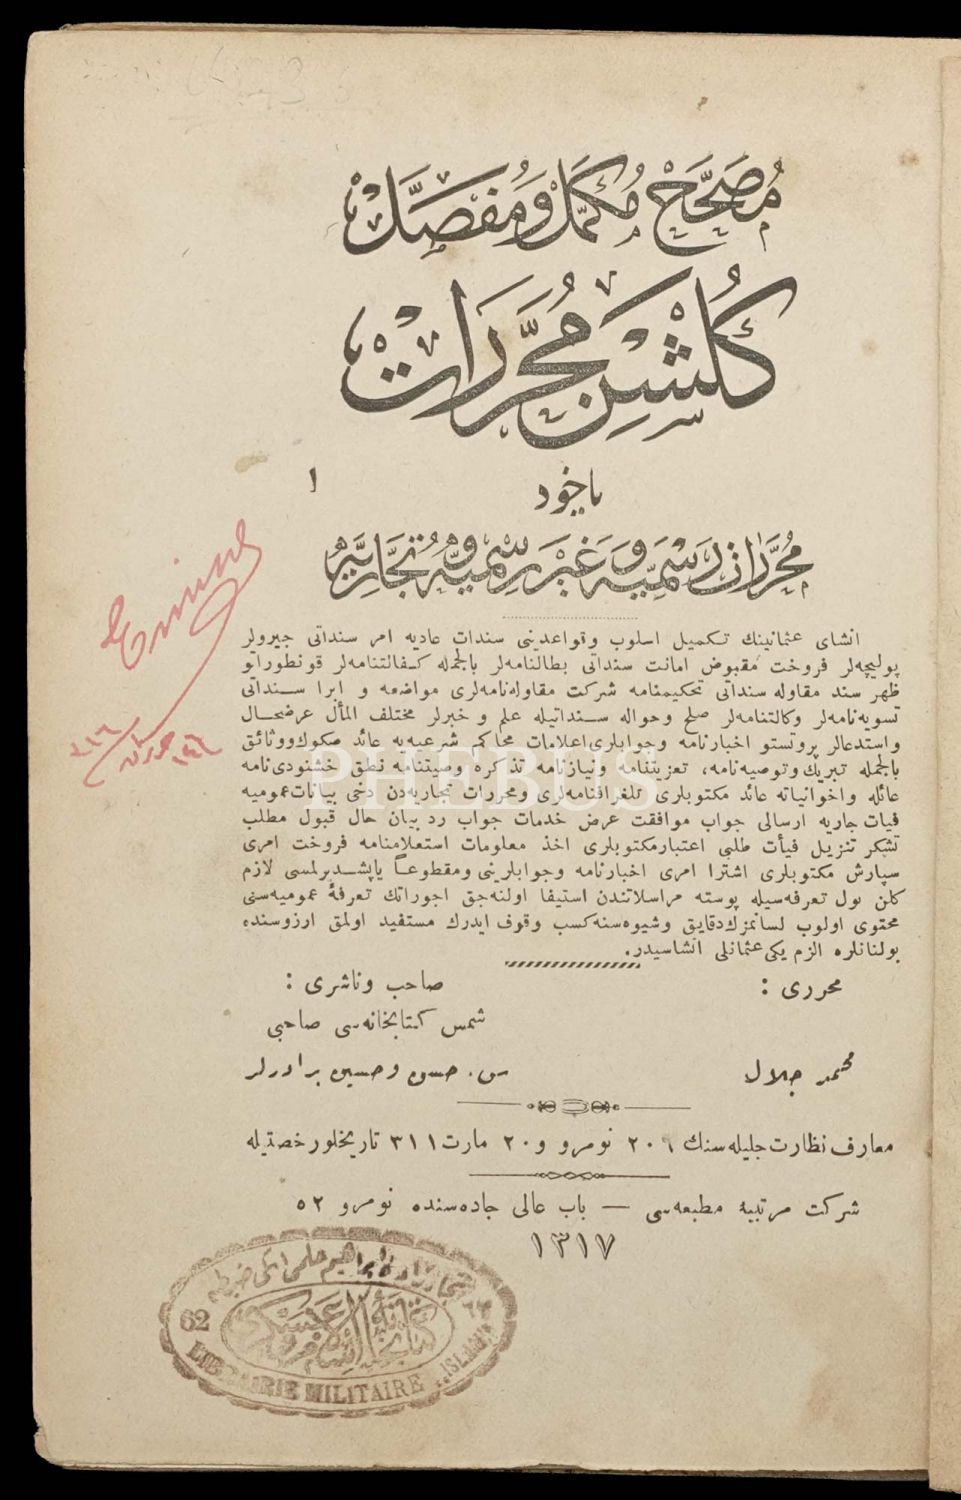 مُصَحَّحْ مُكَمَّلْ وَ مُفَصَّلْ
كُلْشَنِ مُحَرَّرَاتْ
ياخود
١
مُحَرَّرَاتِ رَسْمِيَّه وَ غَيْرِ رَسْمِيَّه وَ تُجَّارِيَّه
انشای عثمانینك تكمیل اسلوب وقواعدینی سندات عادیه امر سنداتی جیرولر
پولیچه‌لر فروخت مقبوض امانت سنداتی بطالنامه‌لر بالجمله كفالتنامه‌لر قونطوراتو
ظهر سند مقاوله سنداتی تحكیمنامه شركت مقاوله‌نامه‌لری مواضعه و ابرا سنداتی
تسویه‌نامه‌لر وكالتنامه‌لر صلح وحواله سنداتیله علم و خبرلر مختلف المأل عرضحال
واستدعالر پروتستو اخبارنامه وجوابلری اعلامات محاكم شرعیه‌یه عائد صكوك ووثائق
بالجمله تبریك وتوصیه‌نامه، تعزیتنامه ونیازنامه تذكره وصیتنامه نطق خشنودی‌نامه
عائله واخوانیاته عائد مكتوبلری تلغرافنامه‌لری ومحررات تجاریه‌دن دخی بیانات عمومیه
فیات جاریه ارسالی جواب موافقت عرض خدمات جواب رد بیان حال قبول مطلب
تشكر تنزیل فیأت طلبی اعتبارمكتوبلری اخذ معلومات استعلامنامه فروخت امری
سپارش مكتوبلری اشترا امری اخبارنامه وجوابلرینی ومقطوعاً یاپشدیرلمسی لازم
كلن پول تعرفه‌سیله پوسته مراسلاتندن استیفا اولنه‌جق اجوراتك تعرفۀ عمومیه‌سنی
محتوی اولوب لسانمزك دقایق وشیوه‌سنه كسب وقوف ایدرك مستفید اولمق ارزوسنده
بولنانلره الزم یكی عثمانلی انشاسیدر.
محرری :
محمد جلال
صاحب وناشری :
شمس كتابخانه‌سی صاحبی
س. حسن وحسین برادرلر
معارف نظارت جلیله‌سنك ٢٠٦ نومرو و ٢٠ مارت ٣١١ تاریخلور خصتیله
شركت مرتبیه مطبعه‌سی — باب عالی جاده‌سنده نومرو ٥٢
١٣١٧
Emine
٦٢
62
كتابخانۀ عسكری
LIBRAIRIE MILITAIRE
PHEBUS